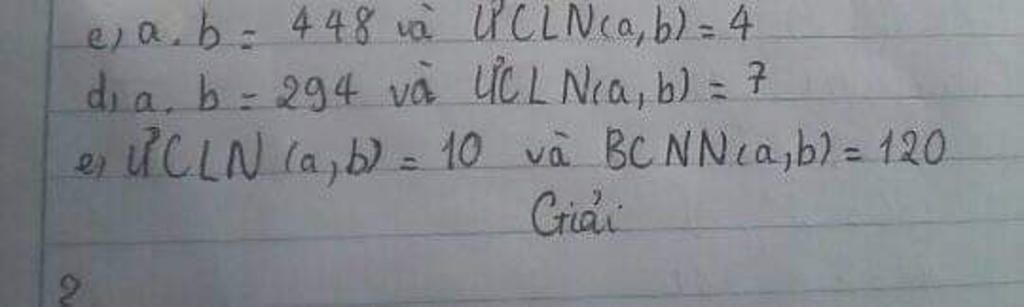 e, a. b = 448 và ƯCLN(a,b) = 4
d, a. b = 294 và ƯCLN(a,b) = 7
e, ƯCLN (a,b) = 10 và BCNN(a,b) = 120
Giải